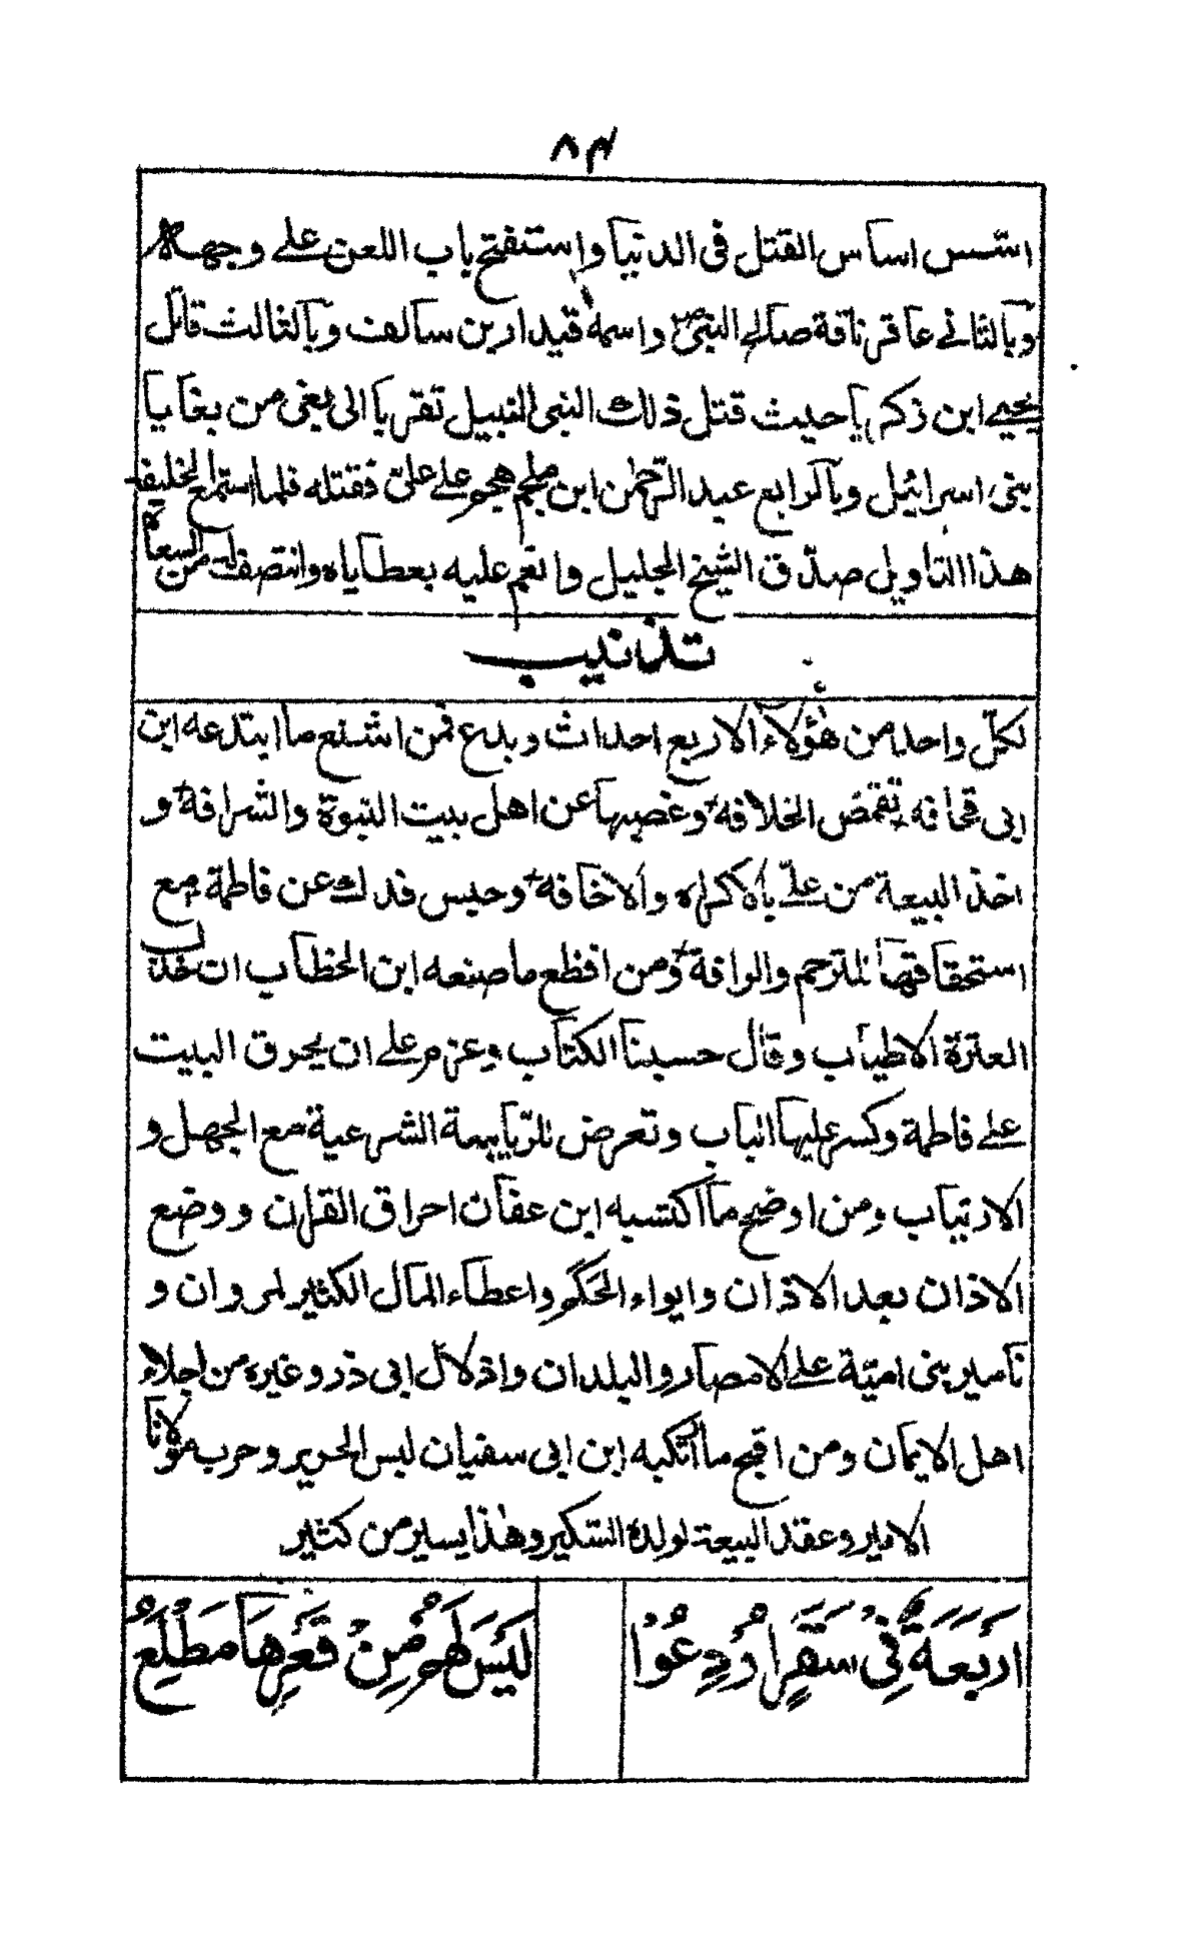 ٨٣
اسّس اساس القتل فى الدنيا واستفتح باب اللعن على وجهه
وبالثانے عاقر ناقة صالح النبىّ واسمهٗ قيدار بن سالف وبالثالث قاتل
يحيے ابن زكريا حيث قتل ذلك النبى النبيل تقربا الى بغى من بغايا
بنى اسرائيل وبالرابع عبد الرّحمٰن ابن ملجم هجم على علىّ فقتله فلما استمع الخليفة
هذا التاويل صدّق الشيخ الجليل وانعم عليه بعطاياه وانتصف له من السعاة
تذنيب
لكلّ واحد من هٰؤلاء الاربع احداث وبدع فمن اشنع ما ابتدعه ابن
ابى قحافه تقمص الخلافه وغصبها عن اهل بيت النبوة والشرافة و
اخذ البيعة من علىّ بالاكراه والاخافه وحبس فدك عن فاطمة مع
استحقاقها للترحم والرافة ومن افظع ما صنعه ابن الخطاب ان خذل
العترة الاطياب وقال حسبنا الكتاب وعزم على ان يحرق البيت
على فاطمة وكسر عليها الباب وتعرض للرّياسة الشرعية مع الجهل و
الارتياب ومن اوضح ما اكتسبه ابن عفان احراق القرآن ووضع
الاذان بعد الاذان وايواء الحكم واعطاء المال الكثير لمروان و
تامير بنى اميّة على الامصار والبلدان واذلال ابى ذر وغيره من اجلاء
اهل الايمان ومن اقبح ما ارتكبه ابن ابى سفيان لبس الحرير وحرب مولانا
الامير وعقد البيعة لولده السّكير وهٰذا يسير من كثير
اَرْبَعَةٌ فِىْ سَقَرٍ اُوْدِعُوْا
لَيْسَ لَهُمْ مِنْ قَعْرِهَا مَطْلَعُ